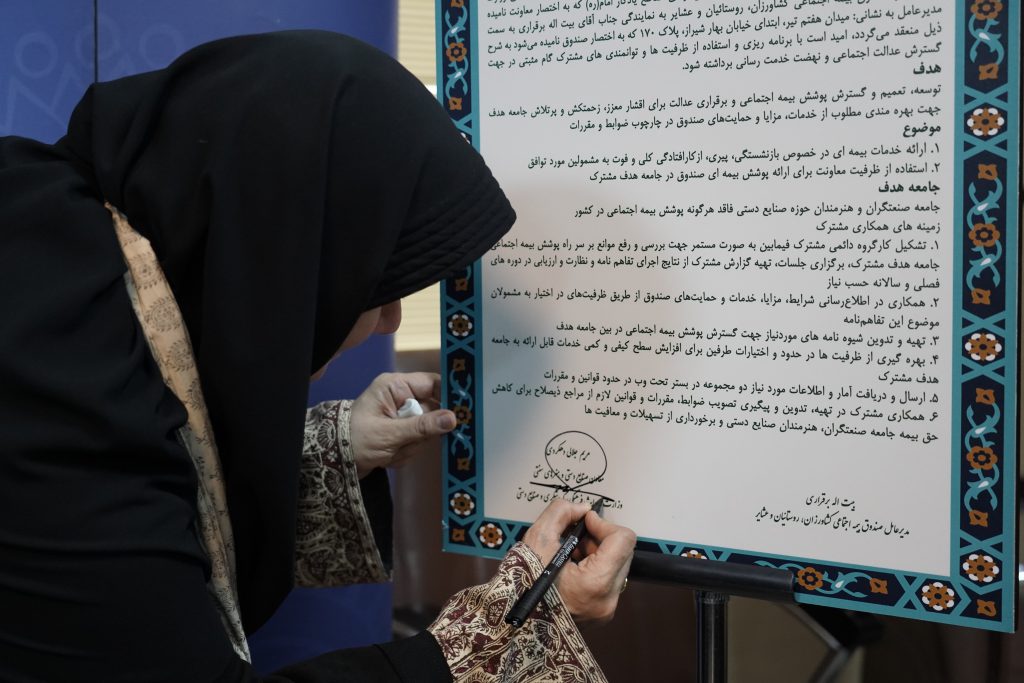 بیمه اجتماعی کشاورزان، روستائیان و عشایر به نمایندگی جناب آقای بیت اله برقراری به سمت
مدیرعامل به نشانی: میدان هفتم تیر، ابتدای خیابان بهار شیراز، پلاک ۱۷۰ که به اختصار صندوق نامیده می‌شود به شرح
ذیل منعقد می‌گردد، امید است با برنامه ریزی و استفاده از ظرفیت ها و توانمندی های مشترک گام مثبتی در جهت
گسترش عدالت اجتماعی و نهضت خدمت رسانی برداشته شود.
هدف
توسعه، تعمیم و گسترش پوشش بیمه اجتماعی و برقراری عدالت برای اقشار معزز، زحمتکش و پرتلاش جامعه هدف
جهت بهره مندی مطلوب از خدمات، مزایا و حمایت‌های صندوق در چارچوب ضوابط و مقررات
موضوع
۱. ارائه خدمات بیمه ای در خصوص بازنشستگی، پیری، ازکارافتادگی کلی و فوت به مشمولین مورد توافق
۲. استفاده از ظرفیت معاونت برای ارائه پوشش بیمه ای صندوق در جامعه هدف مشترک
جامعه هدف
جامعه صنعتگران و هنرمندان حوزه صنایع دستی فاقد هرگونه پوشش بیمه اجتماعی در کشور
زمینه های همکاری مشترک
۱. تشکیل کارگروه دائمی مشترک فیمابین به صورت مستمر جهت بررسی و رفع موانع بر سر راه پوشش بیمه اجتماعی
جامعه هدف مشترک، برگزاری جلسات، تهیه گزارش مشترک از نتایج اجرای تفاهم نامه و نظارت و ارزیابی در دوره های
فصلی و سالانه حسب نیاز
۲. همکاری در اطلاع‌رسانی شرایط، مزایا، خدمات و حمایت‌های صندوق از طریق ظرفیت‌های در اختیار به مشمولان
موضوع این تفاهم‌نامه
۳. تهیه و تدوین شیوه نامه های موردنیاز جهت گسترش پوشش بیمه اجتماعی در بین جامعه هدف
۴. بهره گیری از ظرفیت ها در حدود و اختیارات طرفین برای افزایش سطح کیفی و کمی خدمات قابل ارائه به جامعه
هدف مشترک
۵. ارسال و دریافت آمار و اطلاعات مورد نیاز دو مجموعه در بستر تحت وب در حدود قوانین و مقررات
۶. همکاری مشترک در تهیه، تدوین و پیگیری تصویب ضوابط، مقررات و قوانین لازم از مراجع ذیصلاح برای کاهش
حق بیمه جامعه صنعتگران، هنرمندان صنایع دستی و برخورداری از تسهیلات و معافیت ها
بیت اله برقراری
مدیرعامل صندوق بیمه اجتماعی کشاورزان، روستائیان و عشایر
مریم جلالی دهکردی
معاون صنایع دستی و هنرهای سنتی
وزارت میراث فرهنگی، گردشگری و صنایع دستی